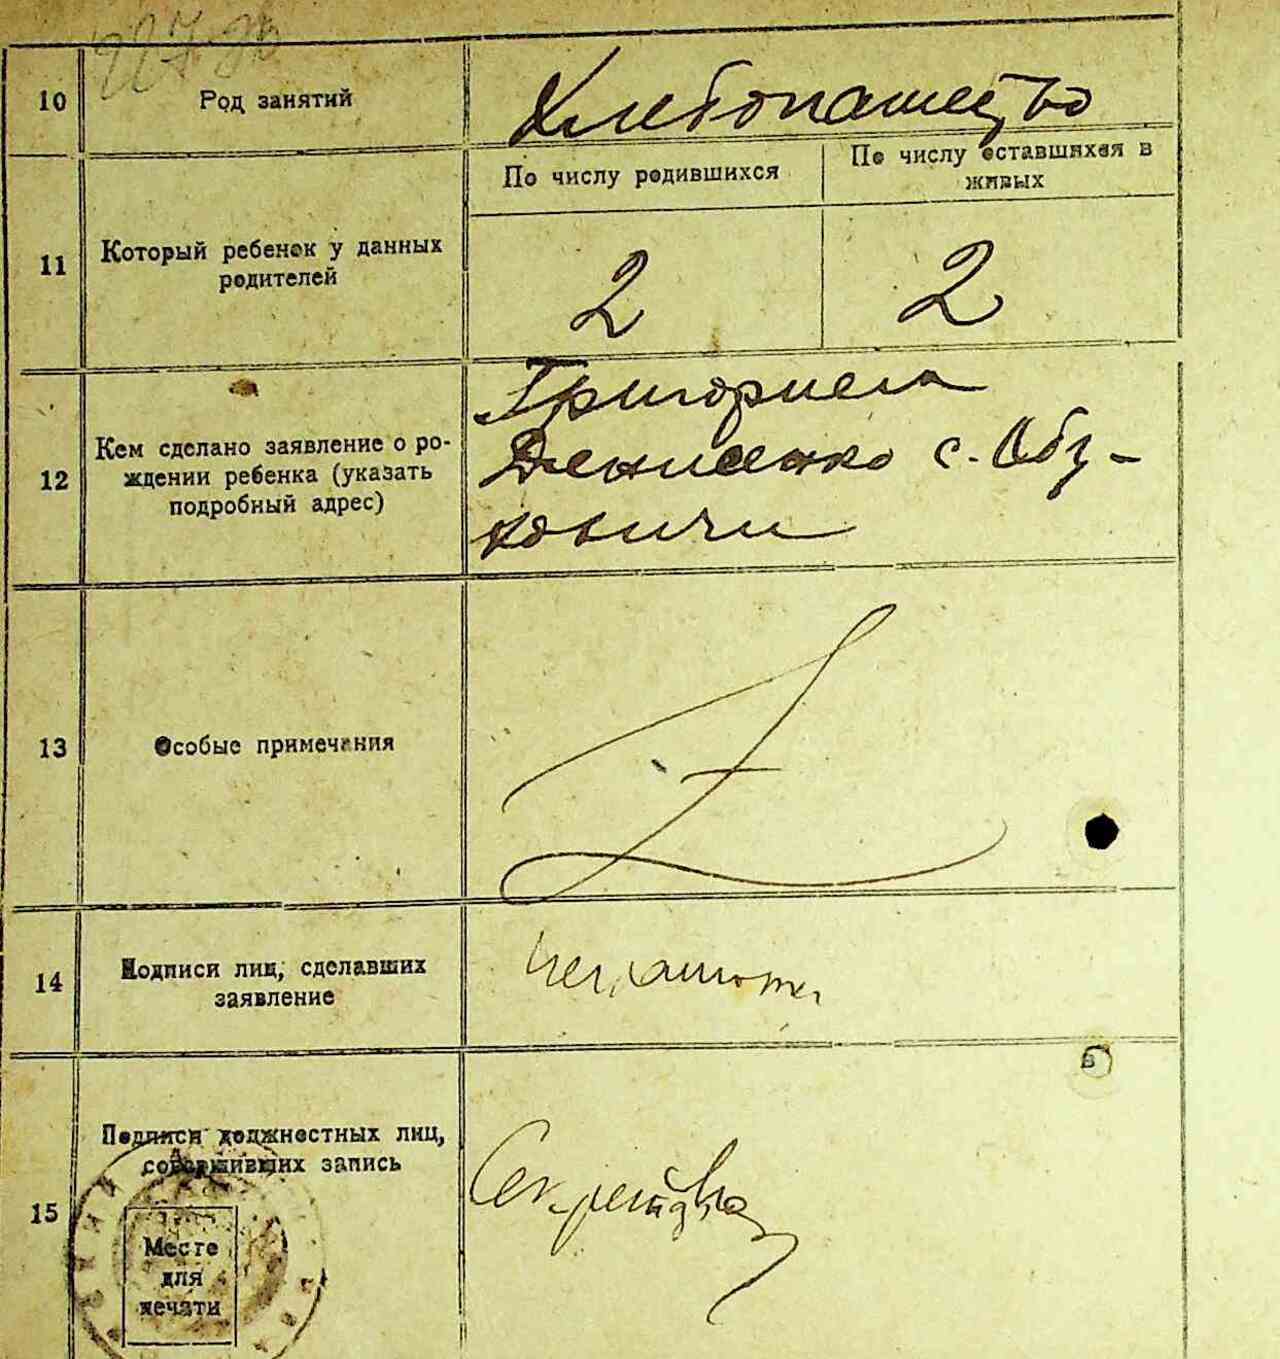 10
Род занятий
Хлебопашество
11
Который ребенок у данных
родителей
По числу родившихся
По числу оставшихся в
живых
2
2
12
Кем сделано заявление о ро-
ждении ребенка (указать
подробный адрес)
Григорием
Денисенко с. Обу-
ховичи
13
Особые примечания
14
Подписи лиц, сделавших
заявление
Неграмотн
15
Подписи должностных лиц,
совершивших запись
Место
для
печати
Секретарь